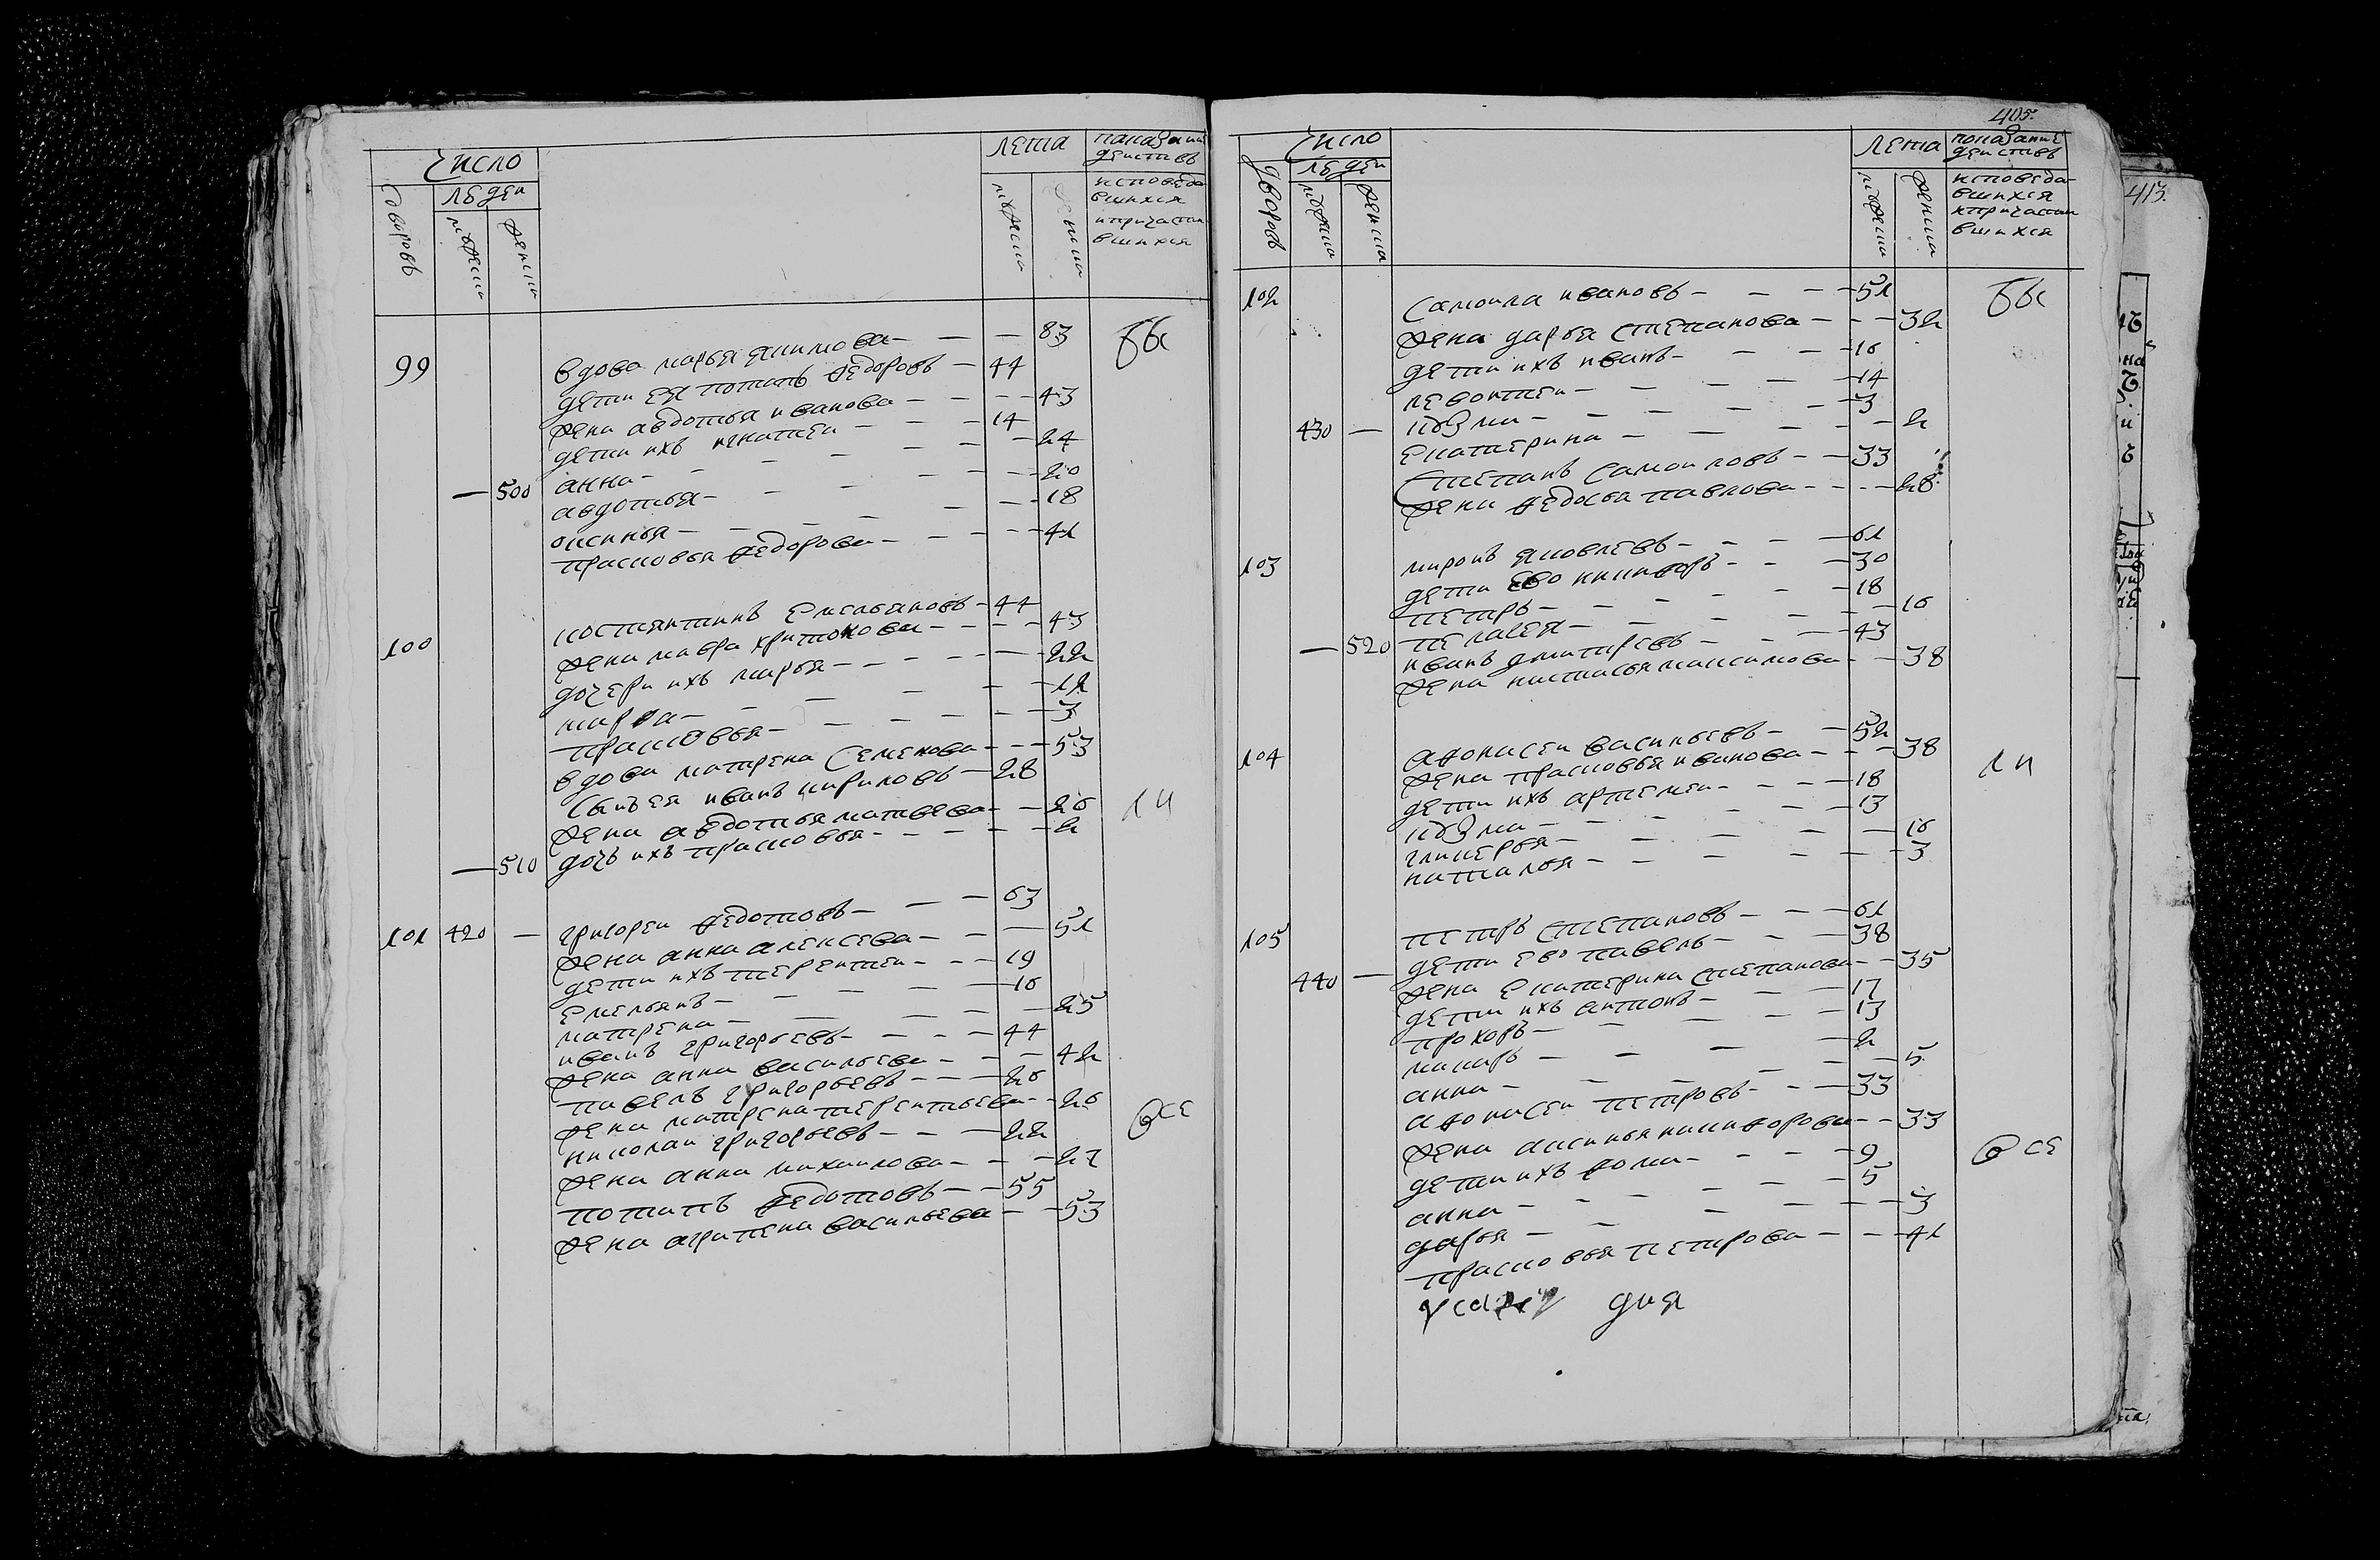 Число лета показание действъ
дворовъ людеи мужеска женска мужеска женска исповедавшихся и причастившихся
99 вдова марья якимова - - - 83 бы
дети ея потапъ федоровъ - 44
жена авдотья иванова - - - 43
дети ихъ игнатеи - - - 14
анна - - - - 24
- 500 авдотья - - - - 20
оксинья - - - - 18
прасковья федорова - - - 41
100 костянтинъ емельяновъ - 44
жена мавра харитонова - - - 43
дочери ихъ марья - - - 22
марфа - - - - 12
прасковья - - - - 3
вдова матрена семенова - - - 53
сынъ ея иванъ кириловъ - 28
жена авдотья матвеева - - 26 ли
- 510 дочь ихъ прасковья - - - 2
101 420 - григореи федотовъ - - - 63
жена анна алексева - - - 51
дети ихъ терентеи - - - 19
емельянъ - - - - 16
матрена - - - - 25
иванъ григорьевъ - - - 44
жена анна васильева - - - 42
павелъ григорьевъ - - - 26
жена матрена терентьева - - 26
николаи григорьевъ - - - 22 все
жена анна михаилова - - - 27
потапъ федотовъ - - 55
жена агрипена васильева - - 53
405.
Число лета показание действъ
дворовъ людеи мужеска женска мужеска женска исповедавшихся и причастившихся
102 самоила ивановъ - - - 51 бы
жена дарья степанова - - - 32
дети ихъ иванъ - - - 16
левонтеи - - - - 14
430 - кузма - - - - 3
екатерина - - - - 2
степанъ самоиловъ - - 33
жена федосья павлова - - - 28
103 миронъ яковлевъ - - - 61
дети ево никифоръ - - - 30
петръ - - - - 18
- 520 пелагея - - - - 16
иванъ дмитревъ - - - 43
жена настасья максимова - - 38
104 афонасеи васильевъ - - 52
жена прасковья иванова - - - 38 ли
дети ихъ артемеи - - - 18
кузма - - - - 13
гликерья - - - - 16
наталья - - - - 3
105 петръ степановъ - - - 61
440 - дети ево павелъ - - - 38
жена екатерина степанова - - 35
дети ихъ антонъ - - - 17
прохоръ - - - - 13
макаръ - - - - 2
анна - - - - 5
афонасеи петровъ - - - 33
жена аксинья никифорова - - 33
дети ихъ фома - - - 9 все
анна - - - - 5
дарья - - - - 3
прасковья петрова - - - 41
дия
413.